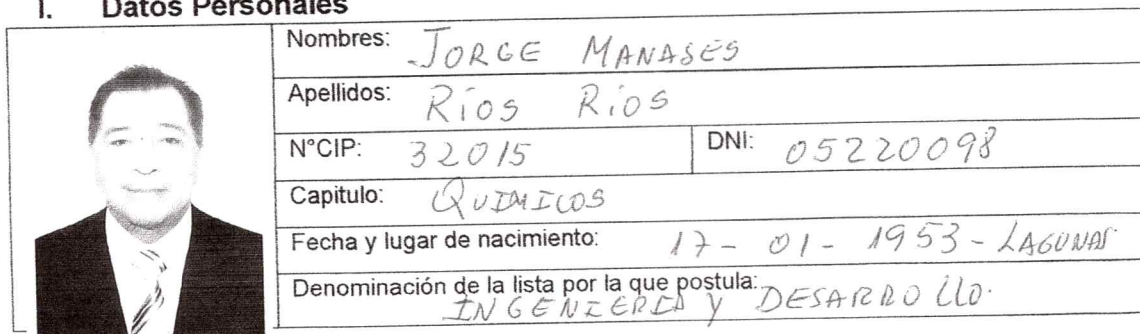 I. Datos Personales
Nombres: JORGE MANASES
Apellidos: Ríos Ríos
N°CIP: 32015 DNI: 05220098
Capitulo: QUIMICOS
Fecha y lugar de nacimiento: 17 - 01 - 1953 - LAGUNAS
Denominación de la lista por la que postula:
INGENIERIA y DESARROLLO.